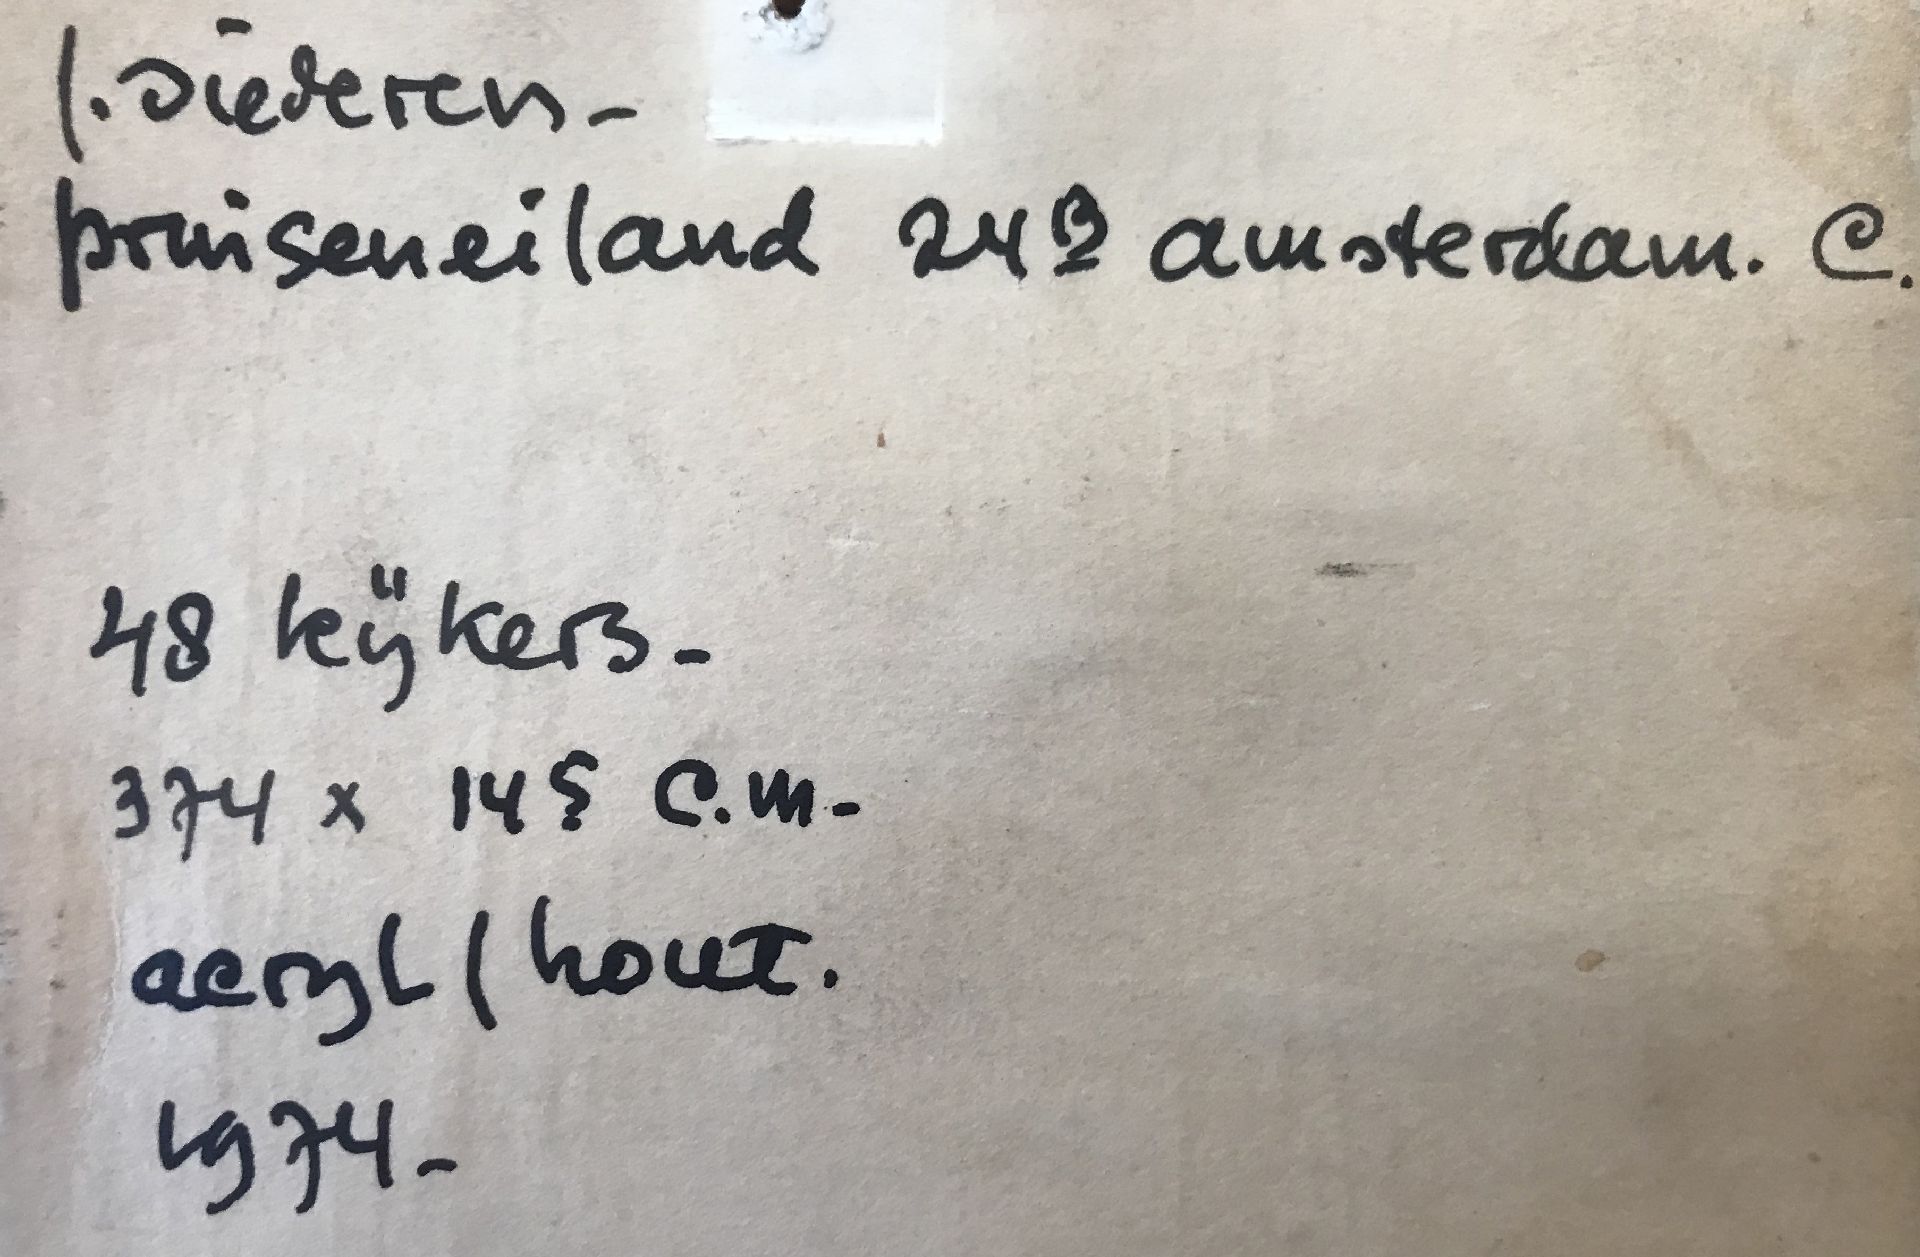 J. Siederen-
prinseneiland 24B amsterdam. C.
48 kijkers-
374 x 145 c.m-
acryl / hout.
1974-